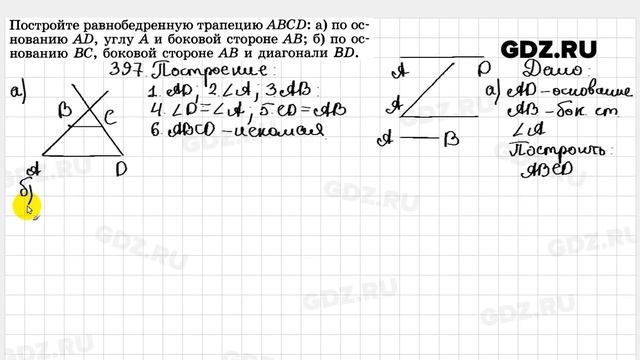 Постройте равнобедренную трапецию ABCD: а) по ос-
нованию AD, углу A и боковой стороне AB; б) по ос-
нованию BC, боковой стороне AB и диагонали BD.
GDZ.RU
397. Построение:
а)
1. AD; 2. ∠A; 3. AB
4. ∠D = ∠A; 5. CD = AB
6. ABCD – искомая
B C
A D
A D
A
A B
Дано:
а) AD – основание
AB – бок ст.
∠A
Построить:
ABCD
б)
GDZ.RU
GDZ.RU
GDZ.RU
GDZ.RU